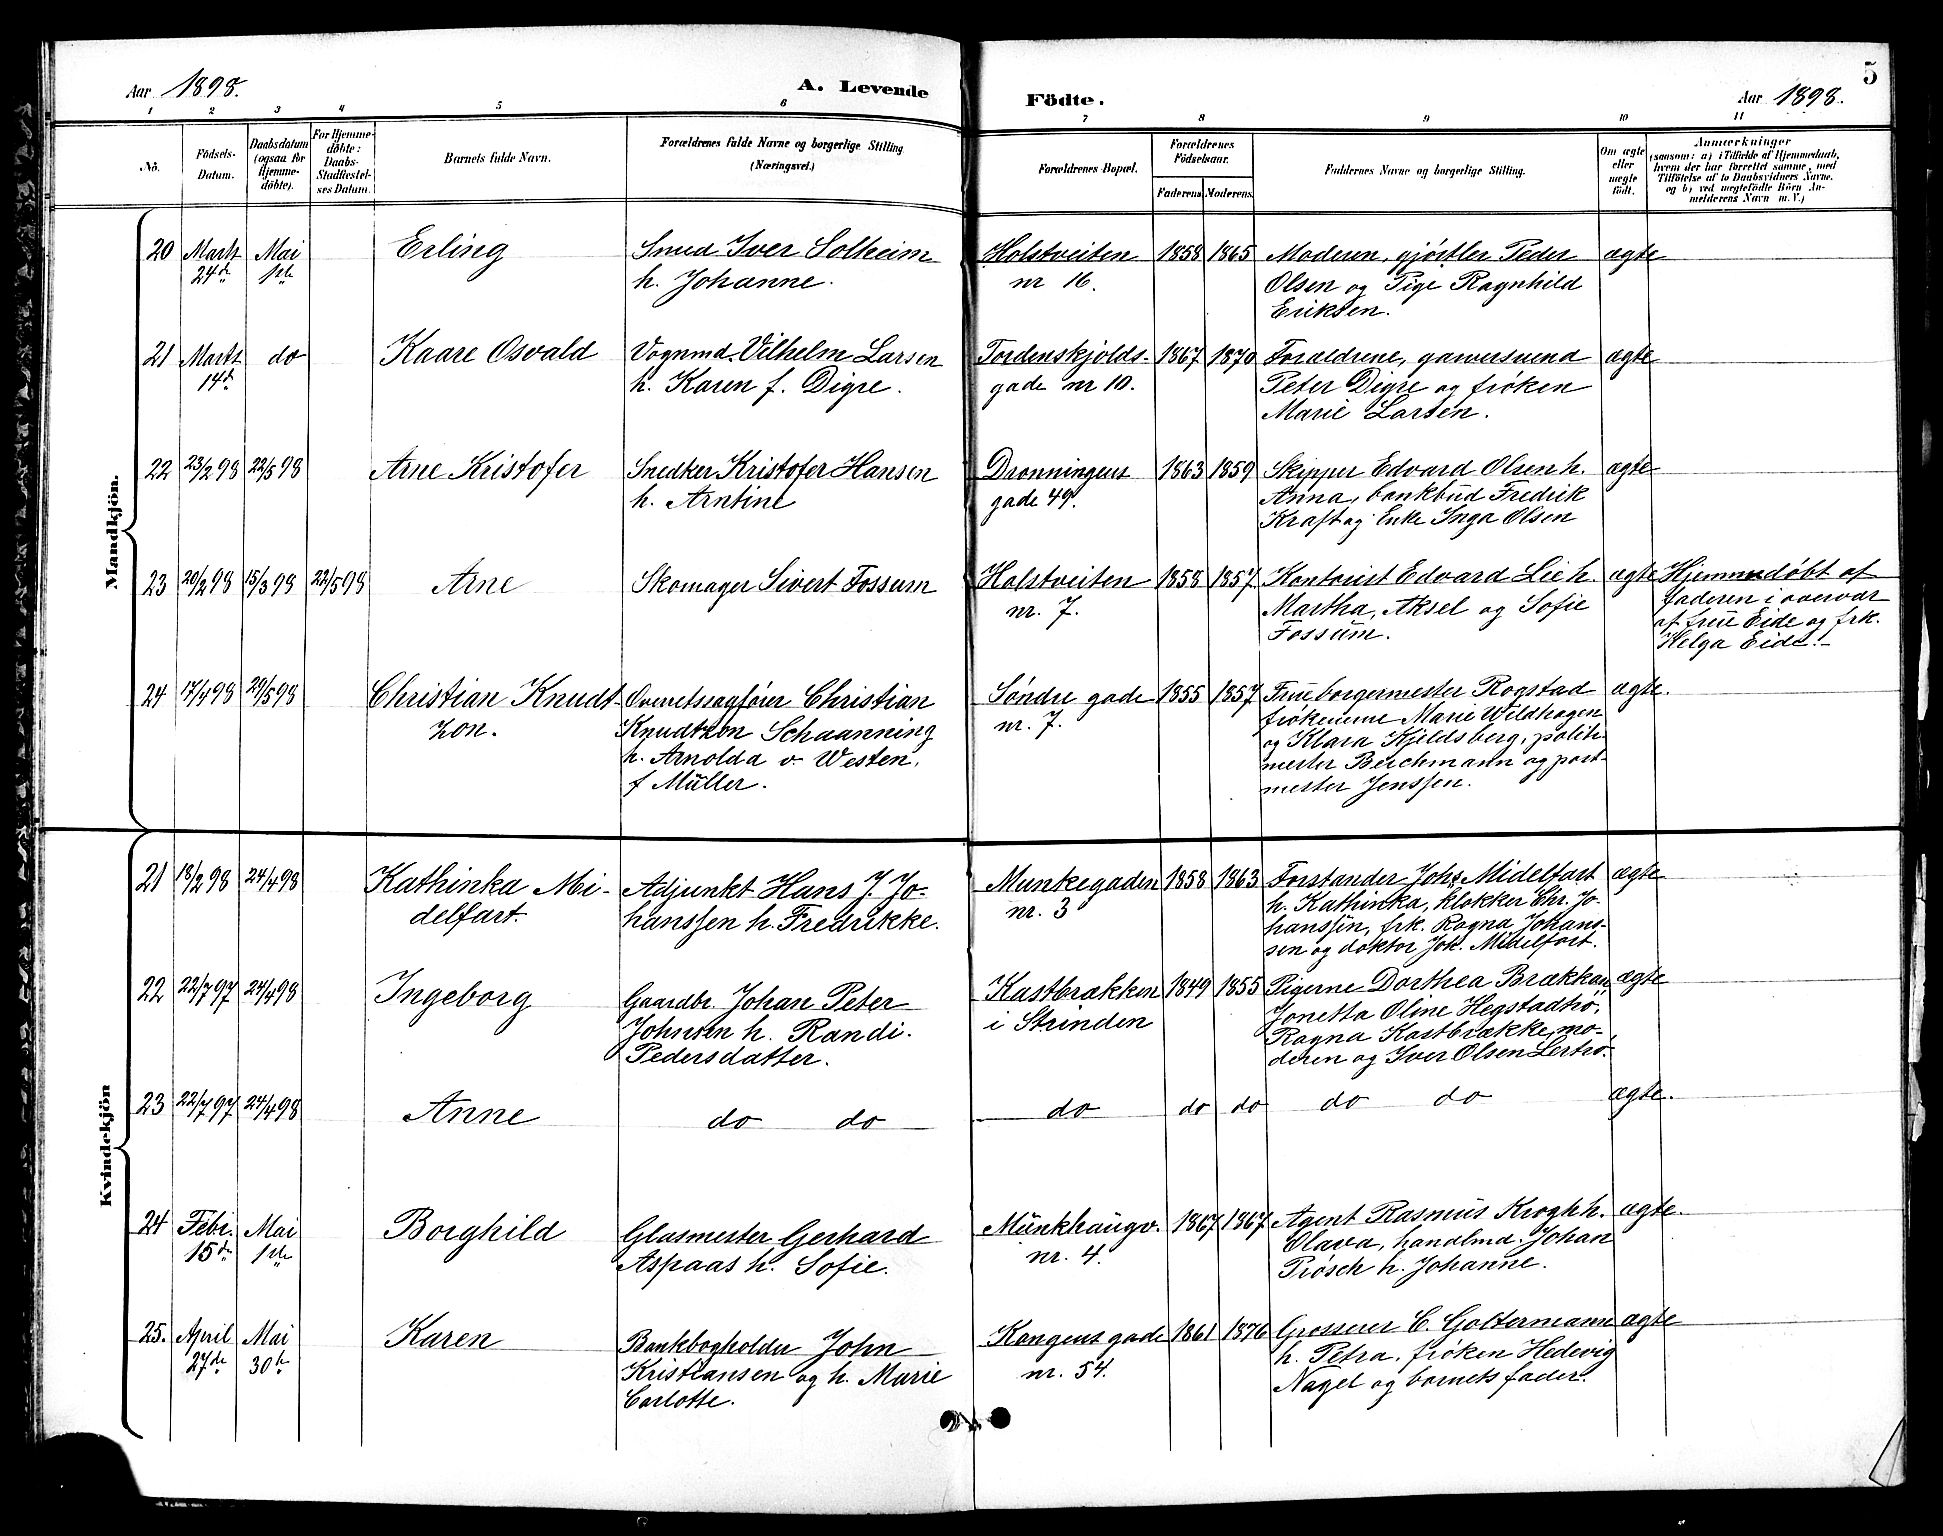 Aar 1898.
A. Levende
Födte.
Aar 1898.
5
1 2 3 4 5 6 7 8 9 10 11
No.
Födsels-
Datum.
Daabsdatum
(ogsaa for
Hjemme-
döbte).
For Hjemme-
döbte:
Daabs-
Stadfæstel-
ses Datum.
Barnets fulde Navn.
Forældrenes fulde Navne og borgerlige Stilling
(Næringsvei.)
Forældrenes Bopæl.
Forældrenes
Födselsaar.
Faderens
Moderens.
Faddernes Navne og borgerlige Stilling.
Om ægte
eller
uægte
födt.
Anmærkninger
(saasom: a) i Tilfælde af Hjemmedaab,
hvem der har forrettet samme, med
Tilföielse af to Daabsvidners Navne,
og b) ved uægtefödte Börn An-
melderens Navn m. V.)
Mandkjön.
20 Marts 24de Mai 1ste Erling
Smed Iver Solheim
h. Johanne.
Holstveiten
nr 16.
1858 1865
Moderen, gjørtler Peder
Olsen og Pige Ragnhild
Eriksen.
ægte
21 Marts 14de do Kaare Osvald
Vognmd. Vilhelm Larsen
h. Karen f. Digre.
Tordenskjolds-
gade nr 10.
1867 1870
Forældrene, garversvend
Peter Digre og frøken
Marie Larsen.
ægte
22 23/2 98 22/5 98 Arne Kristofer
Snedker Kristofer Hansen
h. Arntine
Dronningens
gade 49.
1863 1859
Skipper Edvard Olsen h.
Anna, bankbud Fredrik
Kraft og Enke Inga Olsen
ægte
23 20/2 98 15/3 98 22/5 98 Arne
Skomager Sivert Fossum
Holstveiten
nr. 7.
1858 1857
Kontorist Edvard Lie h.
Martha, Aksel og Sofie
Fossum.
ægte
Hjemmedøbt af
faderen i overvær
af frue Eide og frk.
Helga Eide.
24 17/4 98 29/5 98 Christian Knudt
zon.
Overretssagfører Christian
Knudtzon Schaanning
h. Arnolda v. Westen,
f Müller.
Søndre gade
nr. 7.
1855 1857
Frue borgermester Rogstad
frøkenerne Marie Wildhagen
og Klara Kjeldsberg, politi-
mester Berchmann og post-
mester Jenssen.
ægte.
Kvindekjön
21 18/2 98 24/4 98 Kathinka Mi-
delfart.
Adjunkt Hans J. Jo-
hanssen h. Fredrikke.
Munkegaden
nr. 3
1858 1863
Forstander Johs Midelfart
h. Kathinka, klokker Chr. Jo-
hanssen, frk. Ragna Johans-
sen og doktor Joh. Midelfart.
ægte
22 22/7 97 24/4 98 Ingeborg
Gaardbr. Johan Peter
Johnsen h. Randi
Pedersdatter.
Kastbrækken
i Strinden
1849 1855
Pigerne Dorthea Brækkan
Jonetta Oline Hegstadtrø,
Ragna Kastbrække, mo-
deren og Iver Olsen Lertrø.
ægte
23 22/7 97 24/4 98 Anne
do do
do
do do
do do
ægte.
24 Febr. 15de Mai 1ste Borghild
Glasmester Gerhard
Aspaas h. Sofie.
Munkhaugv.
nr. 4.
1867 1867
Agent Rasmus Krogh h.
Olava, handlmd. Johan
Prøsch h. Johanne.
ægte.
25. April 27de Mai 30te Karen
Bankbogholder John
Kristiansen og h. Marie
Carlotte.
Kongens gade
nr. 54.
1861 1876
Grosserer C. Goltermann
h. Petra, frøken Hedevig
Nagel og barnets fader.
ægte